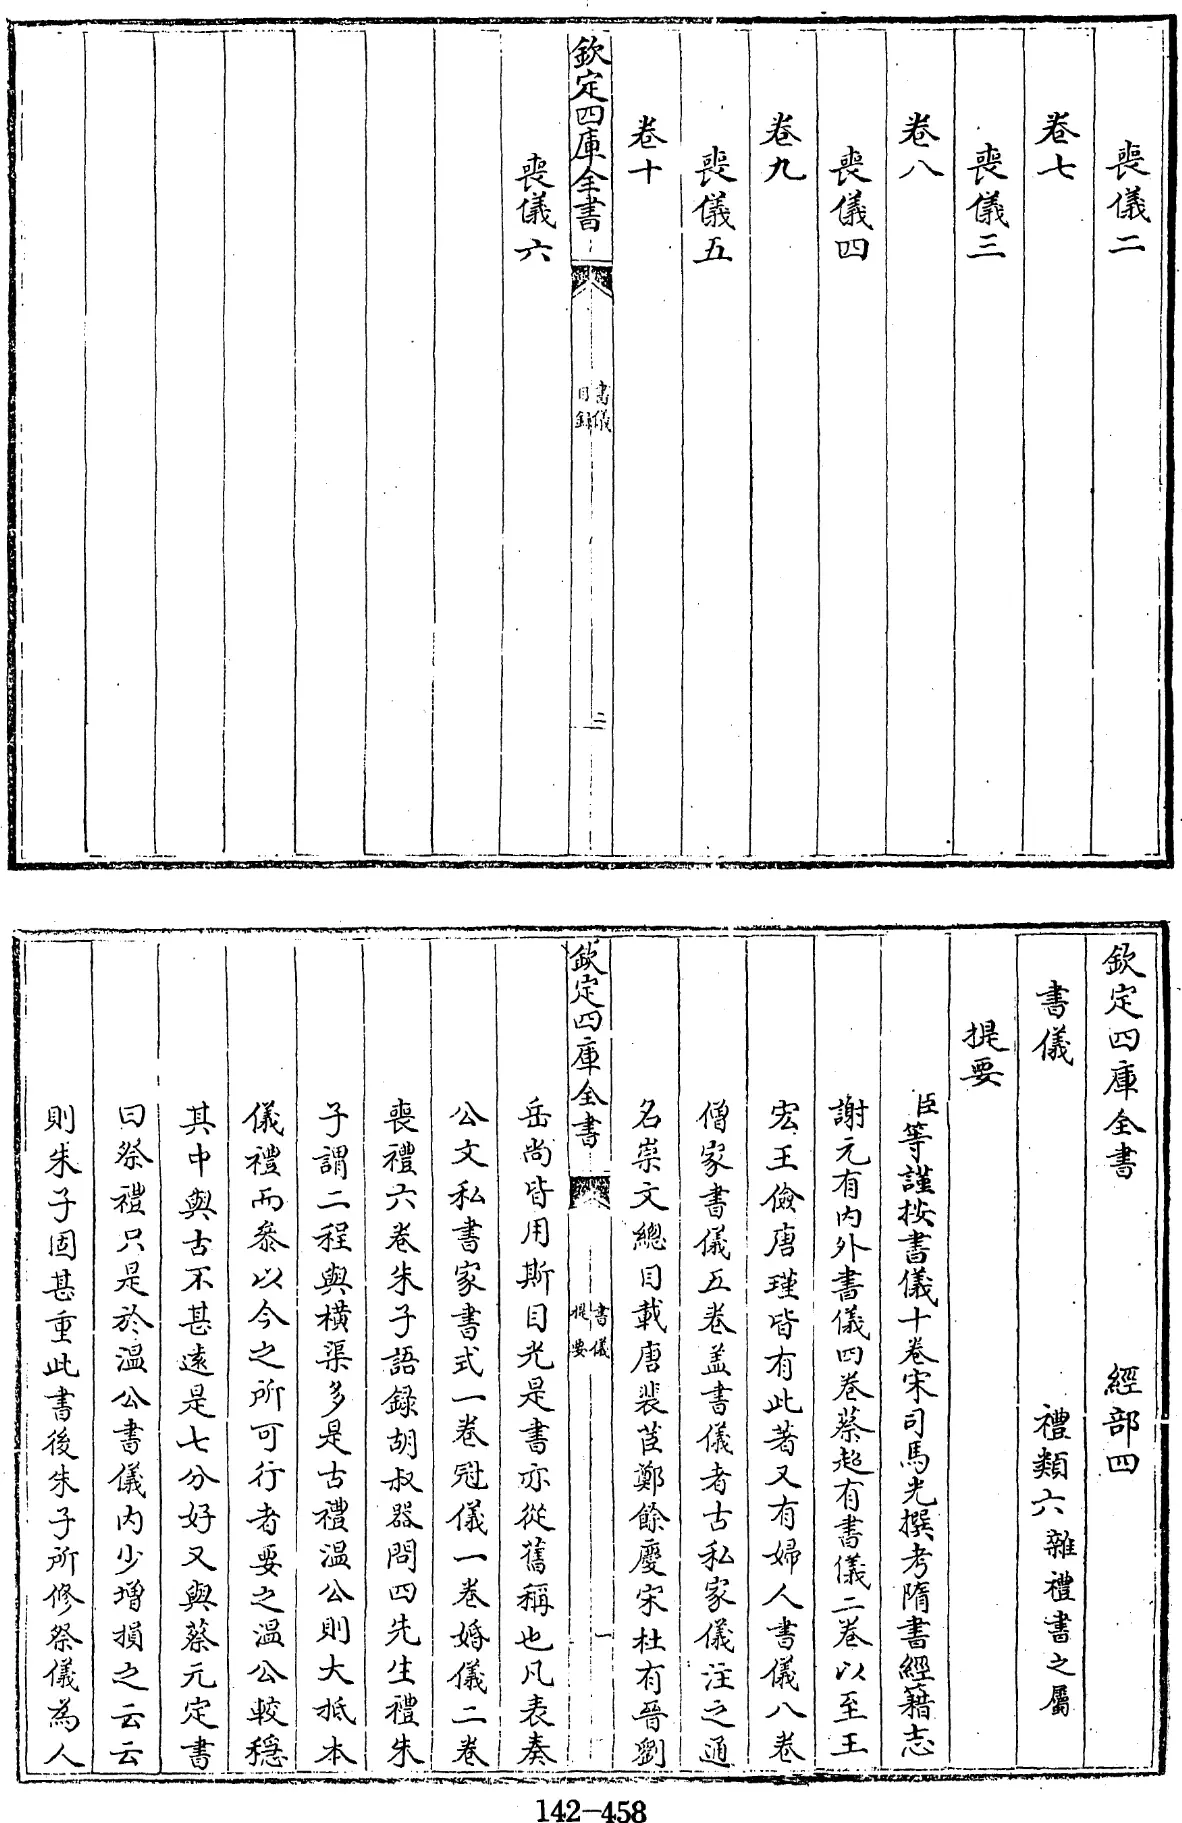 喪儀二
卷七
喪儀三
卷八
喪儀四
卷九
喪儀五
卷十
欽定四庫全書
書儀
目錄
二
喪儀六
欽定四庫全書 經部四
書儀 禮類六雜禮書之屬
提要
臣等謹按書儀十卷宋司馬光撰考隋書經籍志
謝元有内外書儀四卷蔡超有書儀二卷以至王
宏王儉唐瑾皆有此著又有婦人書儀八卷
僧家書儀五卷盖書儀者古私家儀注之通
名崇文總目載唐裴茝鄭餘慶宋杜有晉劉
欽定四庫全書
書儀
提要
一
岳尚皆用斯目光是書亦從舊稱也凡表奏
公文私書家書式一卷冠儀一卷婚儀二卷
喪禮六卷朱子語録胡叔器問四先生禮朱
子謂二程與横渠多是古禮温公則大抵本
儀禮而叅以今之所可行者要之温公較穏
其中與古不甚遠是七分好又與蔡元定書
曰祭禮只是於温公書儀内少增損之云云
則朱子固甚重此書後朱子所修祭儀為人
142-458